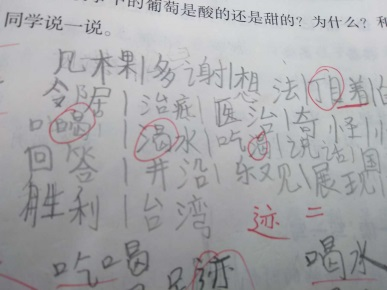 中的葡萄是酸的还是甜的？为什么？和
同学说一说。
几木果|多谢|想法|盯着
令居|治症|医治|奇怪|
口喝|渴水|吃渴|说话|国
回答|井沿|乐又见|展现
胜利|台湾
迹 =
吃喝 迹 喝水